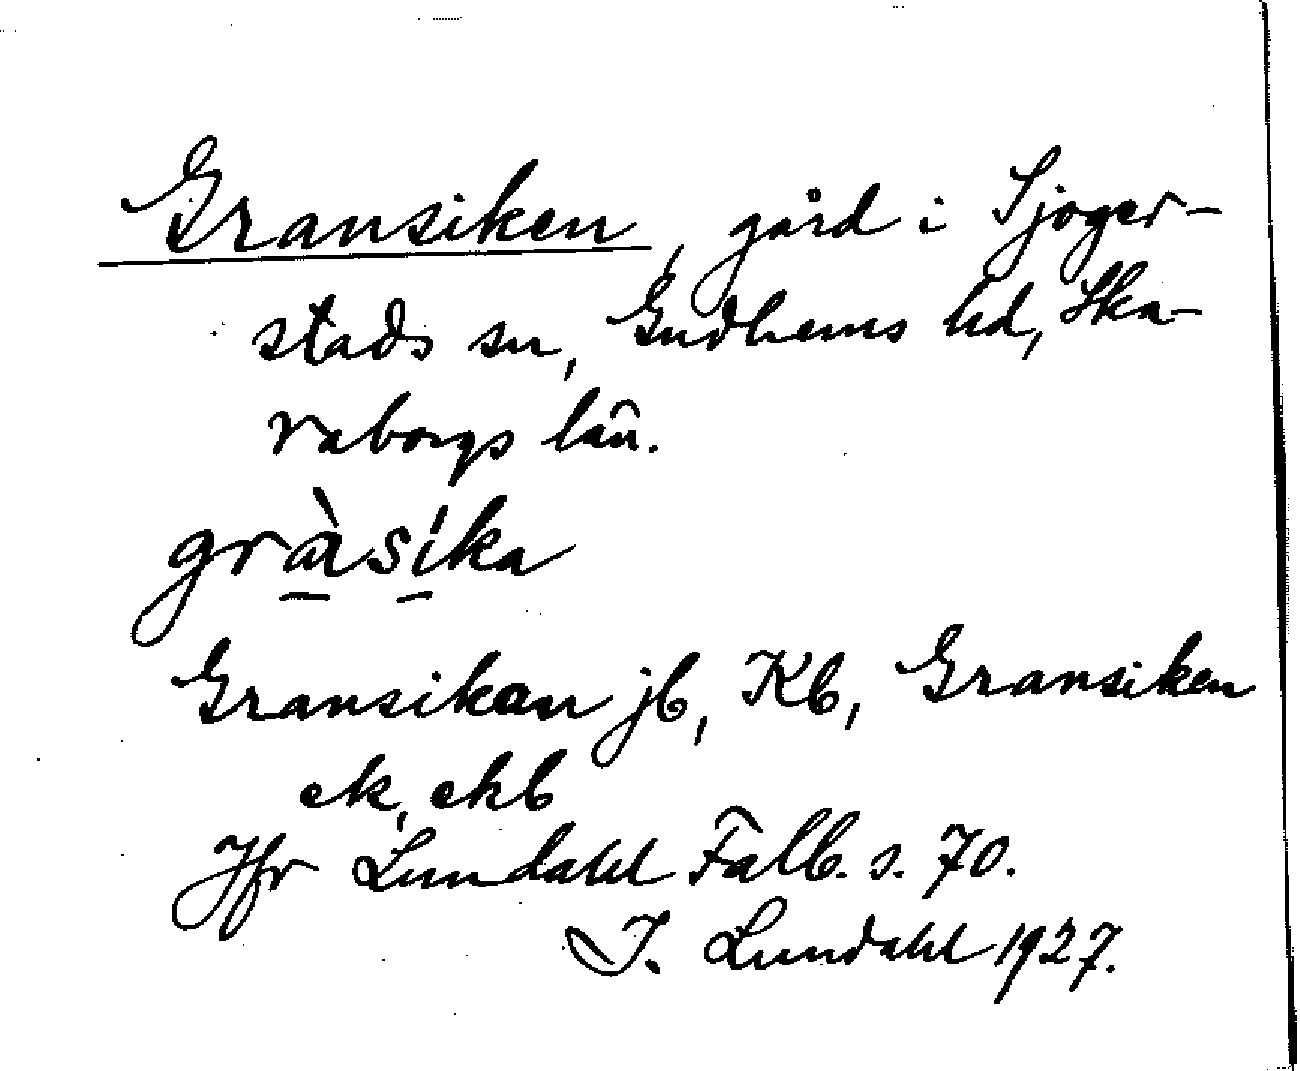 Gransiken, gård i Sjoger-
stads sn, Gudhems hd, Ska-
raborgs län.
gràsíka
Gransikan jb, Kb, Gransiken
ek, ekb
Jfr Lundahl Falb. s. 70.
I. Lundahl 1927.